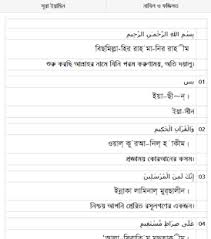 সূরা ইয়াসিন নাযিল ও ফজিলত
بِسْمِ اللهِ الرَّحْمٰنِ الرَّحِيْمِ
বিছমিল্লা-হির রাহ মা-নির রাহ ীম
শুরু করছি আল্লাহর নামে যিনি পরম করুণাময়, অতি দয়ালু।
يس 01
ইয়া-ছী~ন্।
ইয়া-সীন
وَالْقُرْآنِ الْحَكِيمِ 02
ওয়াল্ কু রআ-নিল্ হ াকীম।
প্রজ্ঞাময় কোরআনের কসম।
إِنَّكَ لَمِنَ الْمُرْسَلِينَ 03
ইন্নাকা লামিনাল্ মুর্ছালীন।
নিশ্চয় আপনি প্রেরিত রসূলগণের একজন।
عَلَىٰ صِرَاطٍ مُّسْتَقِيمٍ 04